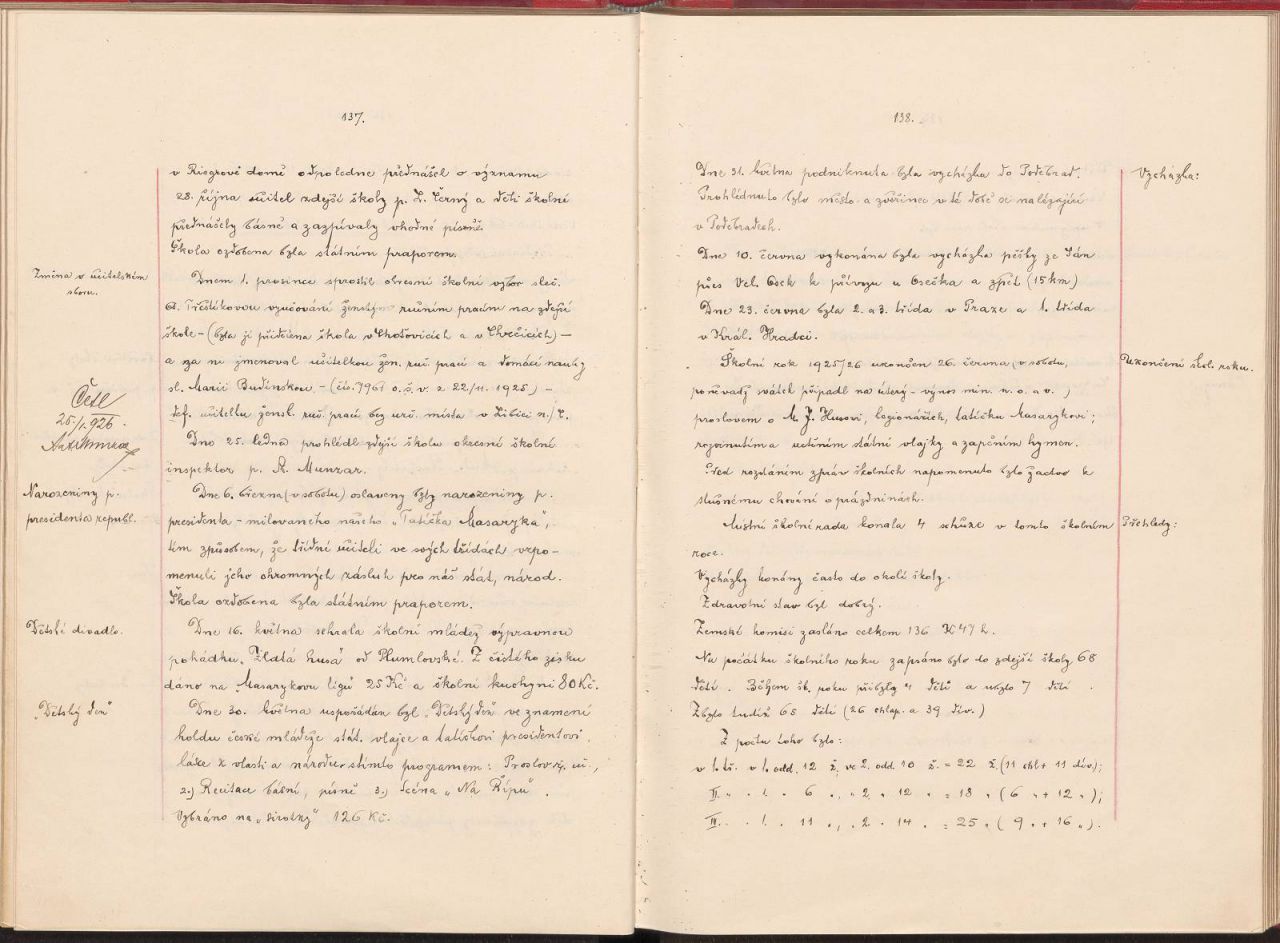 137.
v Riegrově domě odpoledne přednášel o významu
28. října učitel zdejší školy p. L. Černý a děti školní
přednášely básně a zazpívaly vhodné písně.
Škola ozdobena byla státním praporem.
Změna v učitelském
sboru.
Dnem 1. prosince sprostil okresní školní výbor sleč.
Třeštíkovou vyučování ženským ručním pracím na zdejší
škole - (byla jí přidělena škola v Chotovicích a v Chrčicích) -
a za ni jmenoval učitelkou žen. ruč. prací a domácí nauky
sl. Marii Budínskou - (čís. 7961 o. š. v. z 22/11. 1925) -
def. učitelku žensk. ruč. prací bez urč. místa v Libici n./C.
Četl
25./1. 926
Dne 25. ledna prohlédl zdejší školu okresní školní
inspektor p. A. Munzar.
Narozeniny p.
presidenta republ.
Dne 6. března (v sobotu) oslaveny byly narozeniny p.
presidenta - milovaného našeho „Tatíčka Masaryka",
tím způsobem, že třídní učitelé ve svých třídách vzpo-
menuli jeho ohromných zásluh pro náš stát, národ.
Škola ozdobena byla státním praporem.
Dětské divadlo.
Dne 16. května sehrála školní mládež výpravnou
pohádku „Zlatá husa" od Plumlovské. Z čistého zisku
dáno na „Masarykovu ligu" 25 Kč a školní kuchyni 80 Kč.
„Dětský den"
Dne 30. května uspořádán byl „Dětský den" ve znamení
holdu české mládeže stát. vlajce a tatíčkovi presidentovi,
lásce k vlasti a národu s tímto programem: Proslov uč.,
2.) Recitace básní, písně 3.) Scéna „Na Řípu".
Vybráno na „sirotky" 126 Kč.
138.
Vycházka:
Dne 31. května podniknuta byla vycházka do Poděbrad.
Prohlédnuto bylo město a zvěřinec v té době se nalézající
v Poděbradech.
Dne 10. června vykonána byla vycházka pěšky ze Sán
přes Vel. Osek k přívozu u Osečka a zpět (15 km)
Dne 23. června byla 2. a 3. třída v Praze a 1. třída
v Král. Hradci.
Ukončení škol. roku.
Školní rok 1925/26 ukončen 26. června (v sobotu,
poněvadž svátek připadl na úterý - výnos min. n. o. a v.)
proslovem o M. J. Husovi, legionářích, tatíčku Masarykovi;
rozvinutím a uctěním státní vlajky a zapěním hymen.
Před rozdáním zpráv školních napomenuto bylo žactvo k
slušnému chování o prázdninách.
Přehledy:
Místní školní rada konala 4 schůze v tomto školním
roce.
Vycházky konány často do okolí školy.
Zdravotní stav byl dobrý.
Zemské komisi zasláno celkem 136 K 47 h.
Na počátku školního roku zapsáno bylo do zdejší školy 68
dětí. Během šk. roku přibyly 4 děti a ubylo 7 dětí.
Zbylo tudíž 65 dětí (26 chlap. a 39 dív.)
Z počtu toho bylo:
v I. tř. v 1. odd. 12 ž., ve 2. odd. 10 ž. = 22 ž. (11 chl + 11 dív.);
II. „ . 1. „ 6 „ , „ 2. „ 12 „ = 18 „ ( 6 „ + 12 „ );
III. „ . 1. „ 11 „ , „ 2. „ 14 „ = 25 „ ( 9 „ + 16 „ ).